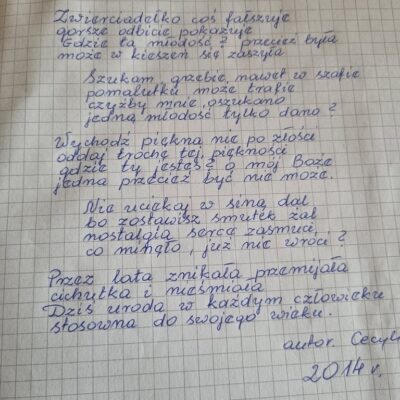 Zwierciadełko coś fałszuje
gorsze odbicie pokazuje
Gdzie ta młodość? przecież była
może w kieszeń się zaszyła
Szukam, grzebię, nawet w szafie
pomalutku może trafię
czyżby mnie oszukano
jedną młodość tylko dano?
Wychodź piękna nie po złości
oddaj trochę tej piękności
gdzie ty jesteś? o mój Boże
jedna przecież być nie może.
Nie uciekaj w siną dal
bo zostawisz smutek żal
nostalgia serce zasmuca,
co minęło, już nie wróci?
Przez lata znikała przemijała
cichutka i nieśmiała
Dziś uroda w każdym człowieku
stosowna do swojego wieku.
autor. Cecyl
2014 r.